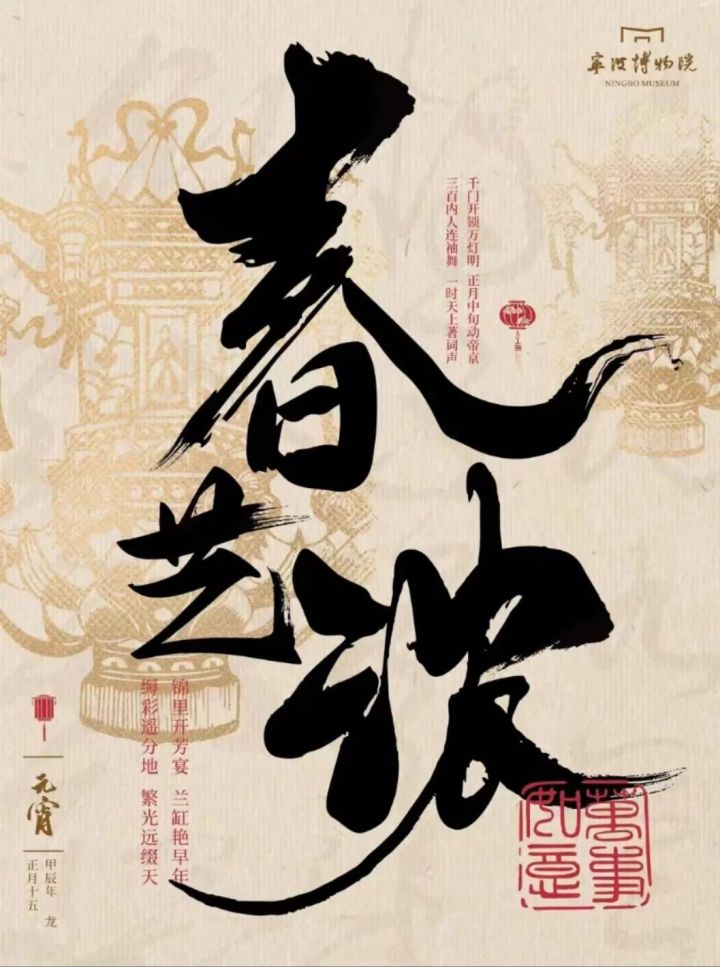 寧波博物院
NINGBO MUSEUM
春艺浓
千门开锁万灯明 正月中旬动帝京
三百内人连袖舞 一时天上著词声
锦里开芳宴 兰缸艳早年
缛彩遥分地 繁光远缀天
元宵
甲辰年 龙
正月十五
萬事
如意